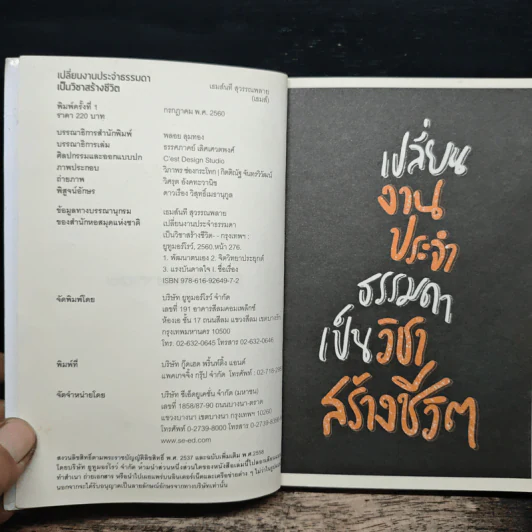 เปลี่ยนงานประจำธรรมดา
เป็นวิชาสร้างชีวิต
เธมส์นที สุวรรณพลาย
(เธมส์)
พิมพ์ครั้งที่ 1 กรกฎาคม พ.ศ. 2560
ราคา 220 บาท
บรรณาธิการสำนักพิมพ์ พลอย ลุมทอง
บรรณาธิการเล่ม อรรศภาคย์ เลิศเศวตพงศ์
ศิลปกรรมและออกแบบปก C'est Design Studio
ภาพประกอบ วิภาพร ช่องกระโทก | กิตติณัฐ จันทรวิวัฒน์
ถ่ายภาพ วิศรุต อังคทะวานิช
พิสูจน์อักษร ดาวเรือง วิสุทธิ์เมธานุกูล
ข้อมูลทางบรรณานุกรม เธมส์นที สุวรรณพลาย
ของสำนักหอสมุดแห่งชาติ เปลี่ยนงานประจำธรรมดา
เป็นวิชาสร้างชีวิต- - กรุงเทพฯ :
ยูทูมอร์โรว์, 2560.หน้า 276.
1. พัฒนาตนเอง 2. จิตวิทยาประยุกต์
3. แรงบันดาลใจ I. ชื่อเรื่อง
ISBN 978-616-92649-7-2
จัดพิมพ์โดย บริษัท ยูทูมอร์โรว์ จำกัด
เลขที่ 191 อาคารสีลมคอมเพล็กซ์
ห้องเอ ชั้น 17 ถนนสีลม แขวงสีลม เขตบางรัก
กรุงเทพมหานคร 10500
โทร. 02-632-0645 โทรสาร 02-632-0646
พิมพ์ที่ บริษัท กู๊ดเฮด พริ้นท์ติ้ง แอนด์
แพคเกจจิ้ง กรุ๊ป จำกัด โทรศัพท์ : 02-715-
จัดจำหน่ายโดย บริษัท ซีเอ็ดยูเคชั่น จำกัด (มหาชน)
เลขที่ 1858/87-90 ถนนบางนา-ตราด
แขวงบางนา เขตบางนา กรุงเทพฯ 10260
โทรศัพท์ 0-2739-8000 โทรสาร 0-2739-
www.se-ed.com
สงวนลิขสิทธิ์ตามพระราชบัญญัติลิขสิทธิ์ พ.ศ. 2537 และฉบับเพิ่มเติม พ.ศ.2558
โดยบริษัท ยูทูมอร์โรว์ จำกัด ห้ามนำส่วนหนึ่งส่วนใดของหนังสือเล่มนี้ไปลอกเลียนแบบ
ทำสำเนา ถ่ายเอกสาร หรือนำไปเผยแพร่บนอินเตอร์เน็ตและเครือข่ายต่าง ๆ ไม่ว่าในรูปแบบใด
นอกจากจะได้รับอนุญาตเป็นลายลักษณ์อักษรจากทางบริษัทเท่านั้น
เปลี่ยน
งาน
ประจำ
ธรรมดา
เป็นวิชา
สร้างชีวิต